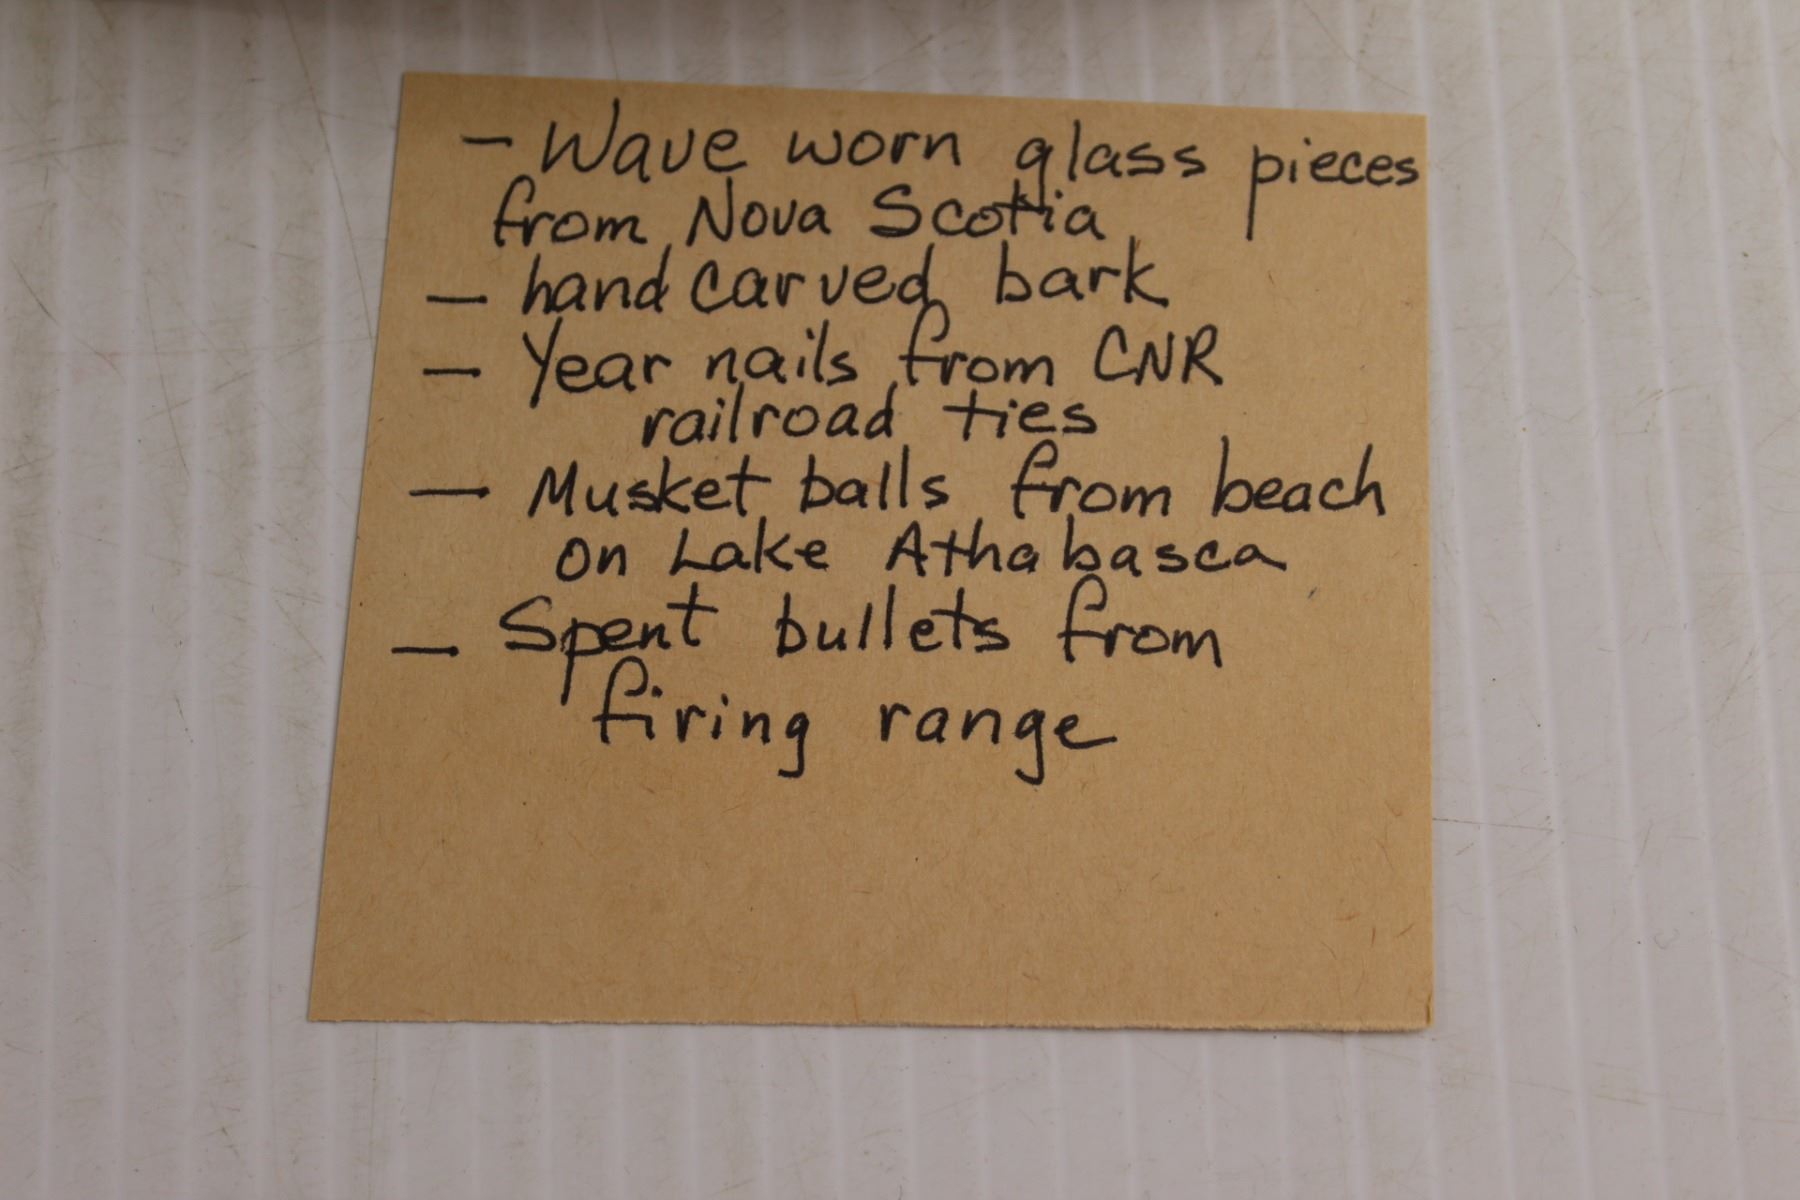 - Wave worn glass pieces
from Nova Scotia
- hand carved bark
- Year nails from CNR
railroad ties
- Musket balls from beach
on Lake Athabasca
- Spent bullets from
firing range